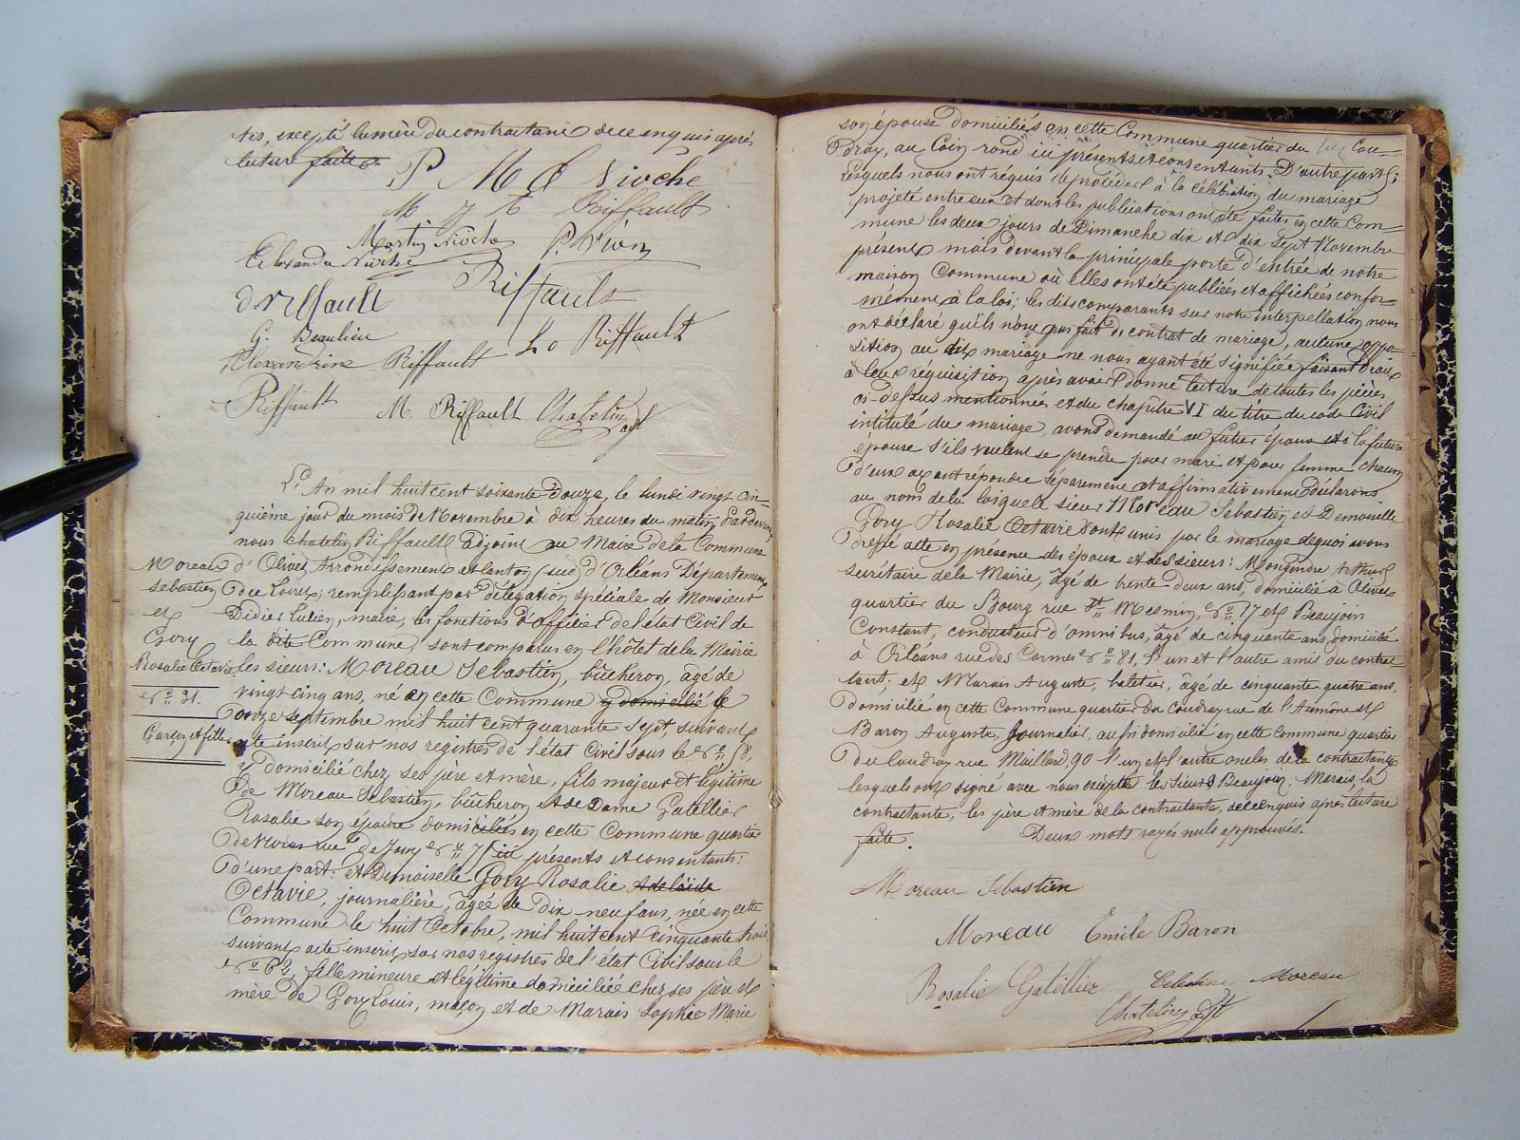 tes, excepté la mère du contractant de ce enquis après
lecture faite
P M C Nioche
M Riffault
Martin Nioche P. Drion
Alexandre Nioche Riffault
d Riffault
G. Beaulieu Lo Riffault
Alexandrine Riffault
Riffault M. Riffault Chatelin Riff
L'An mil huit cent soixante Douze, le lundi vingt cin-
quième jour du mois de Novembre à dix heures du matin, Pardevant
nous Chatelin Riffault Adjoint au Maire de la Commune
d'Olivet, Arrondissement et Canton (sud) d'Orléans Département
du Loiret, remplissant par délégation spéciale de Monsieur
Didier Lucien, maire, les fonctions d'officier de l'état Civil de
la dite Commune, sont comparus en l'hôtel de la Mairie
les sieurs: Moreau Sébastien, bûcheron, âgé de
vingt cinq ans, né en cette Commune y domicilié le
douze septembre mil huit cent quarante sept, suivant
acte inscrit sur nos registres de l'état Civil sous le N° 58,
y domicilié chez ses père et mère, fils majeur et légitime
de Moreau Sébastien, bûcheron et de Dame Gatellier
Rosalie son épouse domiciliés en cette Commune quartier
de Noras rue de Jouy N° 75 ici présents et consentants:
D'une part: et Demoiselle Gory Rosalie Adelaïde
Octavie, journalière, âgée de dix neuf ans, née en cette
Commune le huit Octobre, mil huit cent cinquante trois
suivant acte inscrit sur nos registres de l'état Civil sous le
N° 62, fille mineure et légitime domiciliée chez ses père et
mère de Gory Louis, maçon et de Marais Sophie Marie
Moreau
Sébastien
et
Gory
Rosalie Octavie
N° 31.
Garçon et fille
son épouse domiciliés en cette Commune quartier du Cou-
Dray, au Coin rond ici présents et consentants. D'autre part;
Lesquels nous ont requis de procéder à la célébration du mariage
projeté entre eux et dont les publications ont été faites en cette Com-
mune les deux jours de Dimanche dix et dix Sept Novembre
présent mois devant la principale porte d'entrée de notre
maison Commune où elles ont été publiées et affichées confor-
mément à la loi; les dits comparants sur notre interpellation nous
ont déclaré qu'ils n'ont pas fait de contrat de mariage, aucune oppo-
sition au dit mariage ne nous ayant été signifiée faisant droit
à leur requisition après avoir donné lecture de toutes les pièces
ci-dessus mentionnées et du chapitre VI du titre du code Civil
intitulé du mariage, avons demandé au futur époux et à la future
épouse s'ils veulent se prendre pour mari et pour femme chacun
d'eux ayant répondu séparément et affirmativement déclarons
au nom de la loi que le sieur Moreau Sébastien et Demoiselle
Gory Rosalie Octavie sont unis par le mariage de quoi avons
Dressé acte en présence des époux et des sieurs: Mongondre Arthur
secrétaire de la Mairie, âgé de trente deux ans, domicilié à Olivet
quartier du Bourg rue St Mesmin, N° 17 et Beaujoin
Constant, conducteur d'omnibus, âgé de cinquante ans, domicilié
à Orléans rue des Carmes N° 81, l'un et l'autre amis du contrac-
tant; et Marais Auguste, batelier, âgé de cinquante quatre ans,
domicilié en cette Commune quartier du Coudray rue de l'Aumône et
Baron Auguste, journalier, aussi domicilié en cette Commune quartier
du Coudray rue Maillard, 90 l'un et l'autre oncles de la contractante
lesquels ont signé avec nous excepté les sieurs Beaujoin, Marais, la
contractante, les père et mère de la contractante, de ce enquis après lecture
faite. Deux mots rayés nuls approuvés.
Moreau Sébastien
Moreau Emile Baron
Rosalie Gatellier Celestine Moreau
Chatelin Riff